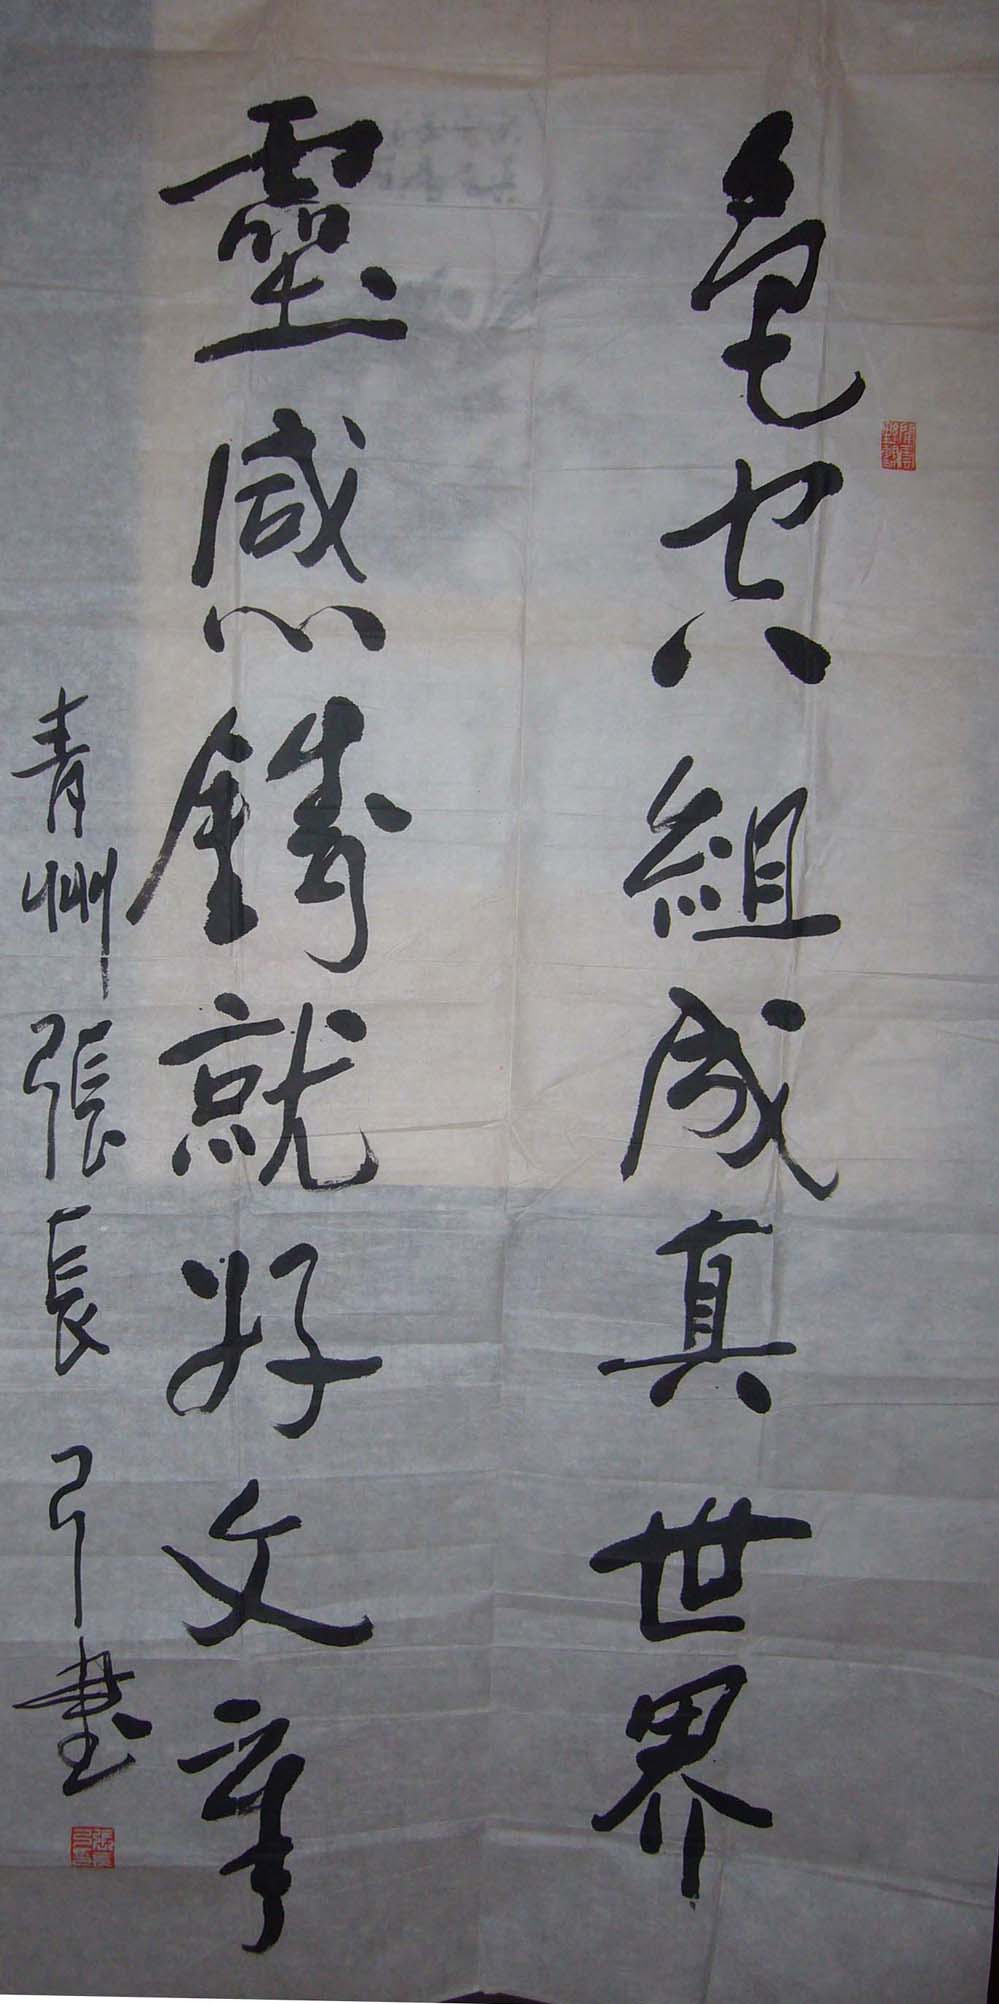 色空組成真世界
靈感鑄就好文章
青州張長弓書